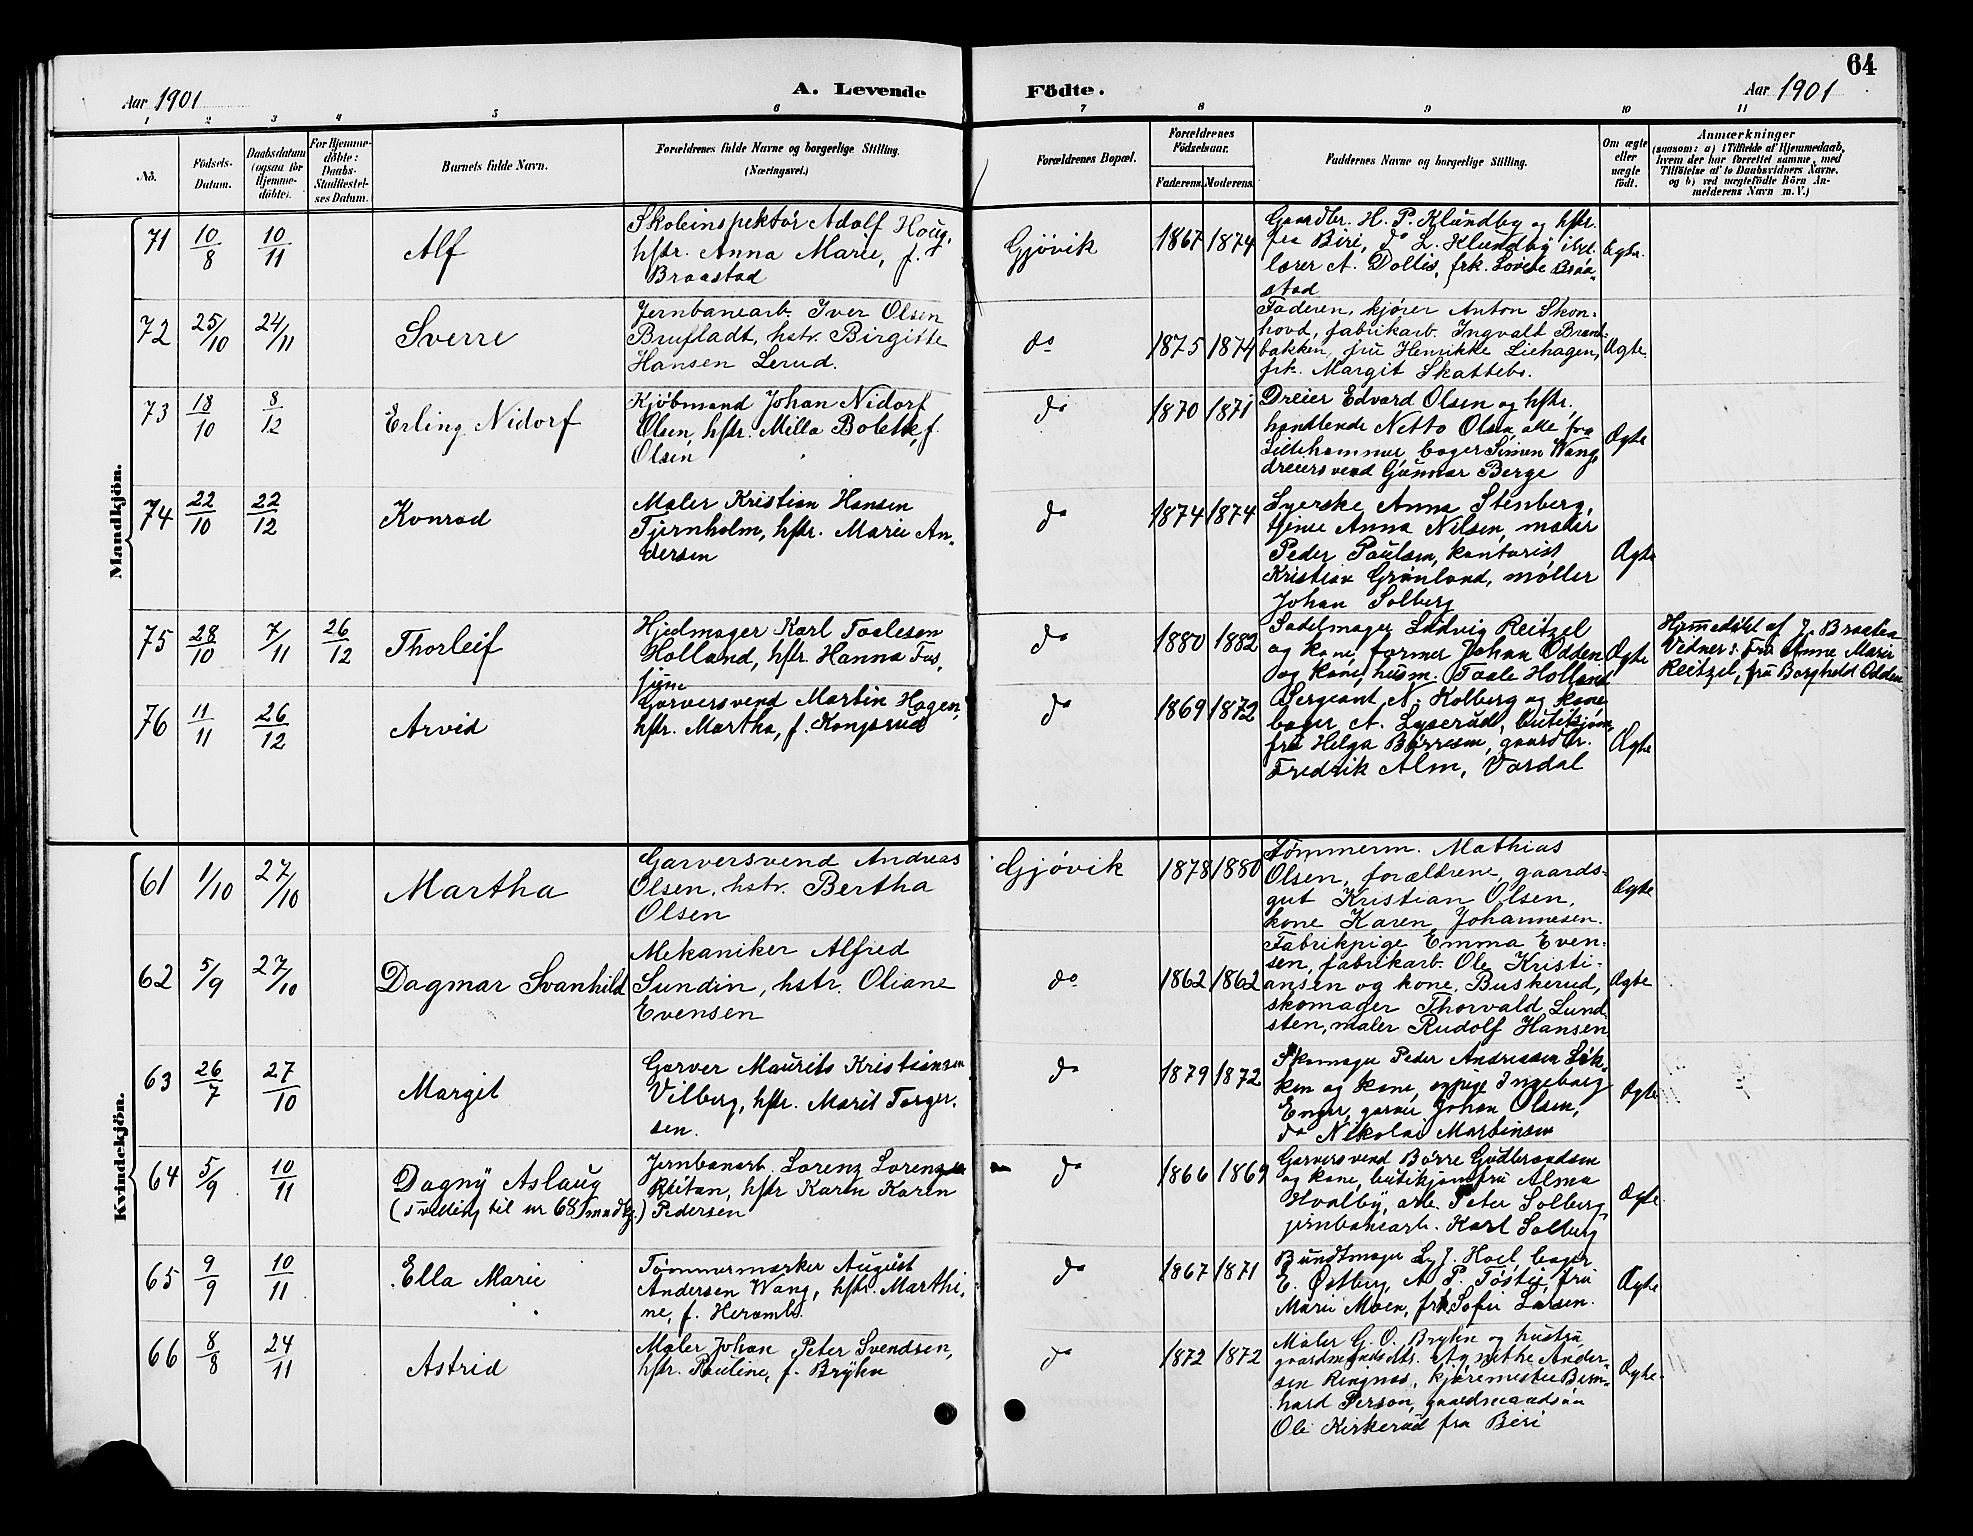 64
Aar 1901
A. Levende Födte.
Aar 1901
1 2 3 4 5 6 7 8 9 10 11
No.
Födsels-Datum.
Daabsdatum (ogsaa for Hjemme-döbte).
For Hjemme-döbte: Daabs-Stadfæstel-ses Datum.
Barnets fulde Navn.
Forældrenes fulde Navne og borgerlige Stilling.
(Næringsvei.)
Forældrenes Bopæl.
Forældrenes Födselsaar.
Faderens. Moderens.
Faddernes Navne og borgerlige Stilling.
Om ægte eller uægte födt.
Anmærkninger
(saasom: a) i Tilfælde af Hjemmedaab,
hvem der har forrettet samme, med
Tilföielse af to Daabsvidners Navne.
og b) ved uægtefödte Börn An-
melderens Navn m. V.)
Mandkjön.
71 10/8 10/11 Alf
Skoleinspektör Adolf Houg,
hstr. Anna Marie, f.
Braastad
Gjövik 1867 1874
Gaardbr. H. P. Klundby og hstr.
fra Biri, do L. Klundby
lærer A. Dollis, frk. Lovise Braa-
stad
Ægte.
72 25/10 24/11 Sverre
Jernbanearb. Iver Olsen
Brufladt, hstr. Birgitte
Hansen Lerud.
do 1875 1874
Faderen, kjører Anton Skon-
hovd, fabrikarb. Ingvald Brænd-
bakken, fru Henrikke Liehagen,
frk. Margit Skattebo.
Ægte.
73 18/10 8/12 Erling Nidorf
Kjöbmand Johan Nidorf
Olsen, hstr. Milla Bolette, f.
Olsen
do 1870 1871
Dreier Edvard Olsen og hstr.
handlende Netto Olsen, alle fra
Lillehammer, bager Simen Wang,
dreiersvend Gunnar Berge
Ægte
74 22/10 22/12 Konrad
Maler Kristian Hansen
Tjernholm, hstr. Marie An-
dersen
do 1874 1874
Syerske Anna Stenberg,
tjene Anna Nilsen, maler
Peder Paulsen, kontorist
Kristian Grönlund, møller
Johan Solberg
Ægte
75 28/10 7/11 26/12 Thorleif
Hjulmager Karl Taalesen
Holland, hstr. Hanna Fos-
jum
do 1880 1882
Sadelmager Ludvig Reitzel
og kone, former Johan Odden
og kone, husm. Taale Holland
Ægte
Hjemmedöbt af J. Braaten
Vidner: Fru Anne Marie
Reitzel, fru Borghild Odden
76 11/11 26/12 Arvid
Garversvend Martin Hagen,
hstr. Martha, f. Kongsrud
do 1869 1872
Sergeant N. Kolberg og kone
bager A. Lyserud, butiksjom-
fru Helga Börresen, gaardbr.
Fredrik Alm, Vardal
Ægte
Kvindekjön.
61 1/10 27/10 Martha
Garversvend Andreas
Olsen, hstr. Bertha
Olsen
Gjövik 1878 1880
Tømmerm. Mathias
Olsen, forældrene, gaards-
gut Kristian Olsen,
kone Karen Johannesen.
Ægte
62 5/9 27/10 Dagmar Svanhild
Mekaniker Alfred
Sundin, hstr. Oliane
Evensen
do 1862 1862
Fabrikpige Emma Even-
sen, fabrikarb. Ole Kristi-
ansen og kone, Buskerud,
skomager Thorvald Lund-
sten, maler Rudolf Hansen
Ægte
63 26/7 27/10 Margit
Garver Maurits Kristiansen
Vilberg, hstr. Marit Torger-
sen.
do 1879 1872
Skomager Peder Andreasen Løk-
ken og kone, sypige Ingeborg
Enger, garver Johan Olsen,
do Nikolai Martinsen
Ægte
64 5/9 10/11 Dagny Aslaug
(tvilling til nr 68 mandkj.)
Jernbanarb. Lorenz Lorenzen
Reitan, hstr Karen Karen
Pedersen
do 1866 1869
Garversvend Börre Gudbrandsen
og kone, butikjomfru Alma
Hvalby, arb. Peter Solberg,
jernbanearb. Karl Solberg
Ægte
65 9/9 10/11 Ella Marie
Tömmermærker August
Andersen Wang, hstr. Marthi-
ne, f.
do 1867 1871
Bundtmager L. J. Hoel, bager
E. Østberg, A. P. Tøsti, fru
Marie Moen, frk Sofie Larsen.
Ægte
66 8/8 24/11 Astrid
Maler Johan Peter Svendsen,
hstr. Pauline, f. Bryhn
do 1872 1872
Maler G. O. Bryhn og hustru,
gaardmandsdtr. Agnethe Ander-
sen Ringnæs, kjöremester Bern-
hard Person, gaardmandsön
Ole Kirkerud fra Biri
Ægte.